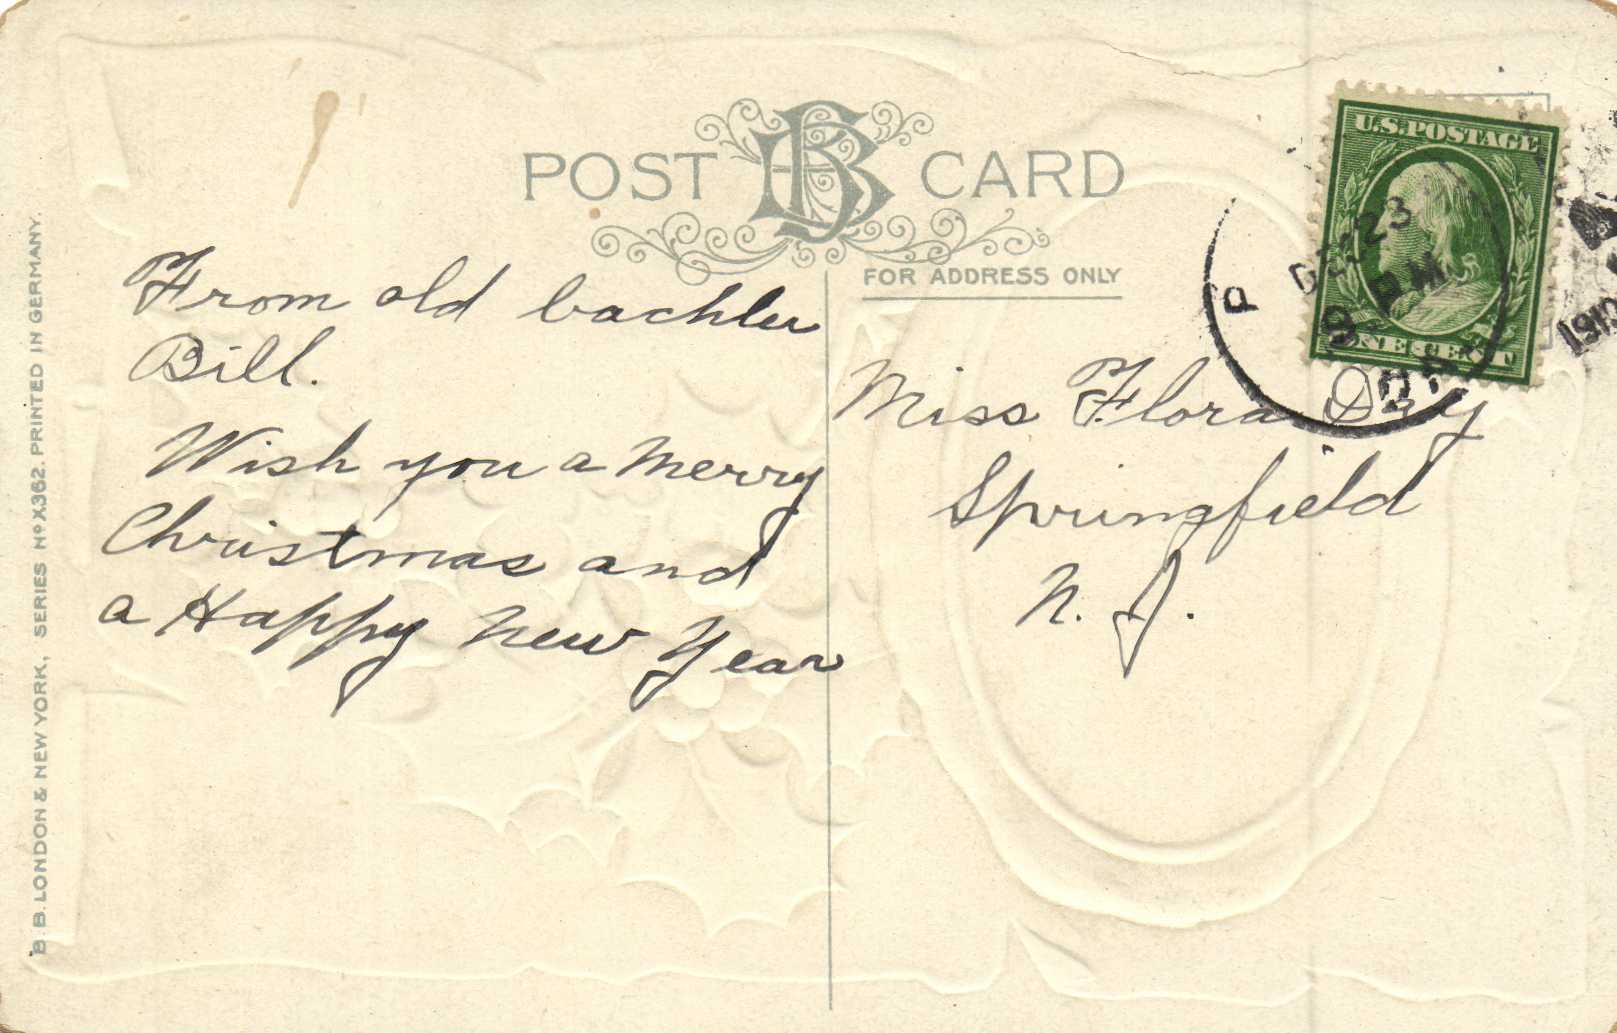 POST CARD
FOR ADDRESS ONLY
U.S. POSTAGE
ONE CENT
DEC 23
P.M.
1910
From old bachler
Bill.
Wish you a Merry
Christmas and
a Happy New Year
Miss Flora Day
Springfield
N. J.
B.B. LONDON & NEW YORK, SERIES No X362. PRINTED IN GERMANY.